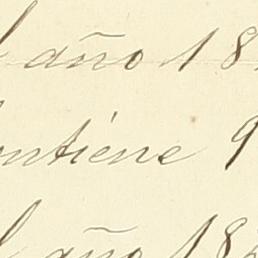 l año 18
ontiene 9
l año 18